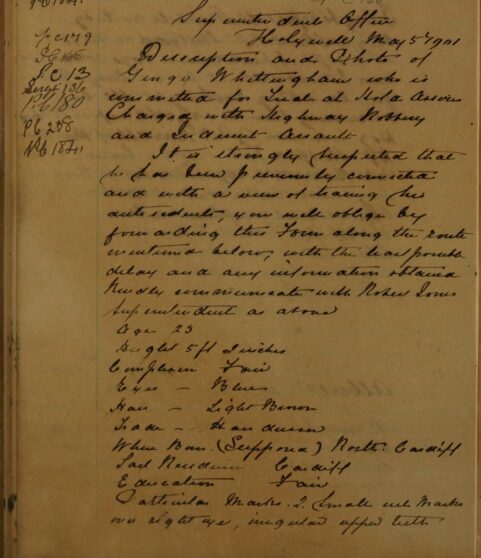 Superintendents Office
Holywell May 5th 1901
Description and Photo of
George Whittingham who is
committed for Trial at Mold Assizes
Charged with Highway Robbery
and Indecent Assault
It is strongly suspected that
he has been previously convicted
and with a view of tracing his
antecedents, you will oblige by
forwarding this Form along the route
mentioned below, with the least possible
delay and any information obtained
Kindly communicate with Robert Jones
Superintendent as above
Age 23
Height 5ft 2 inches
Complexion Fair
Eyes - Blue
Hair - Light Brown
Trade -
Where Born (Supposed) North Cardiff
Last Residence Cardiff
Education Fair
Particular Marks. 2 Small cut Marks
right eye, irregular upper teeth
PC 179
PC 13
Sergt 136
PC 180
PC 258